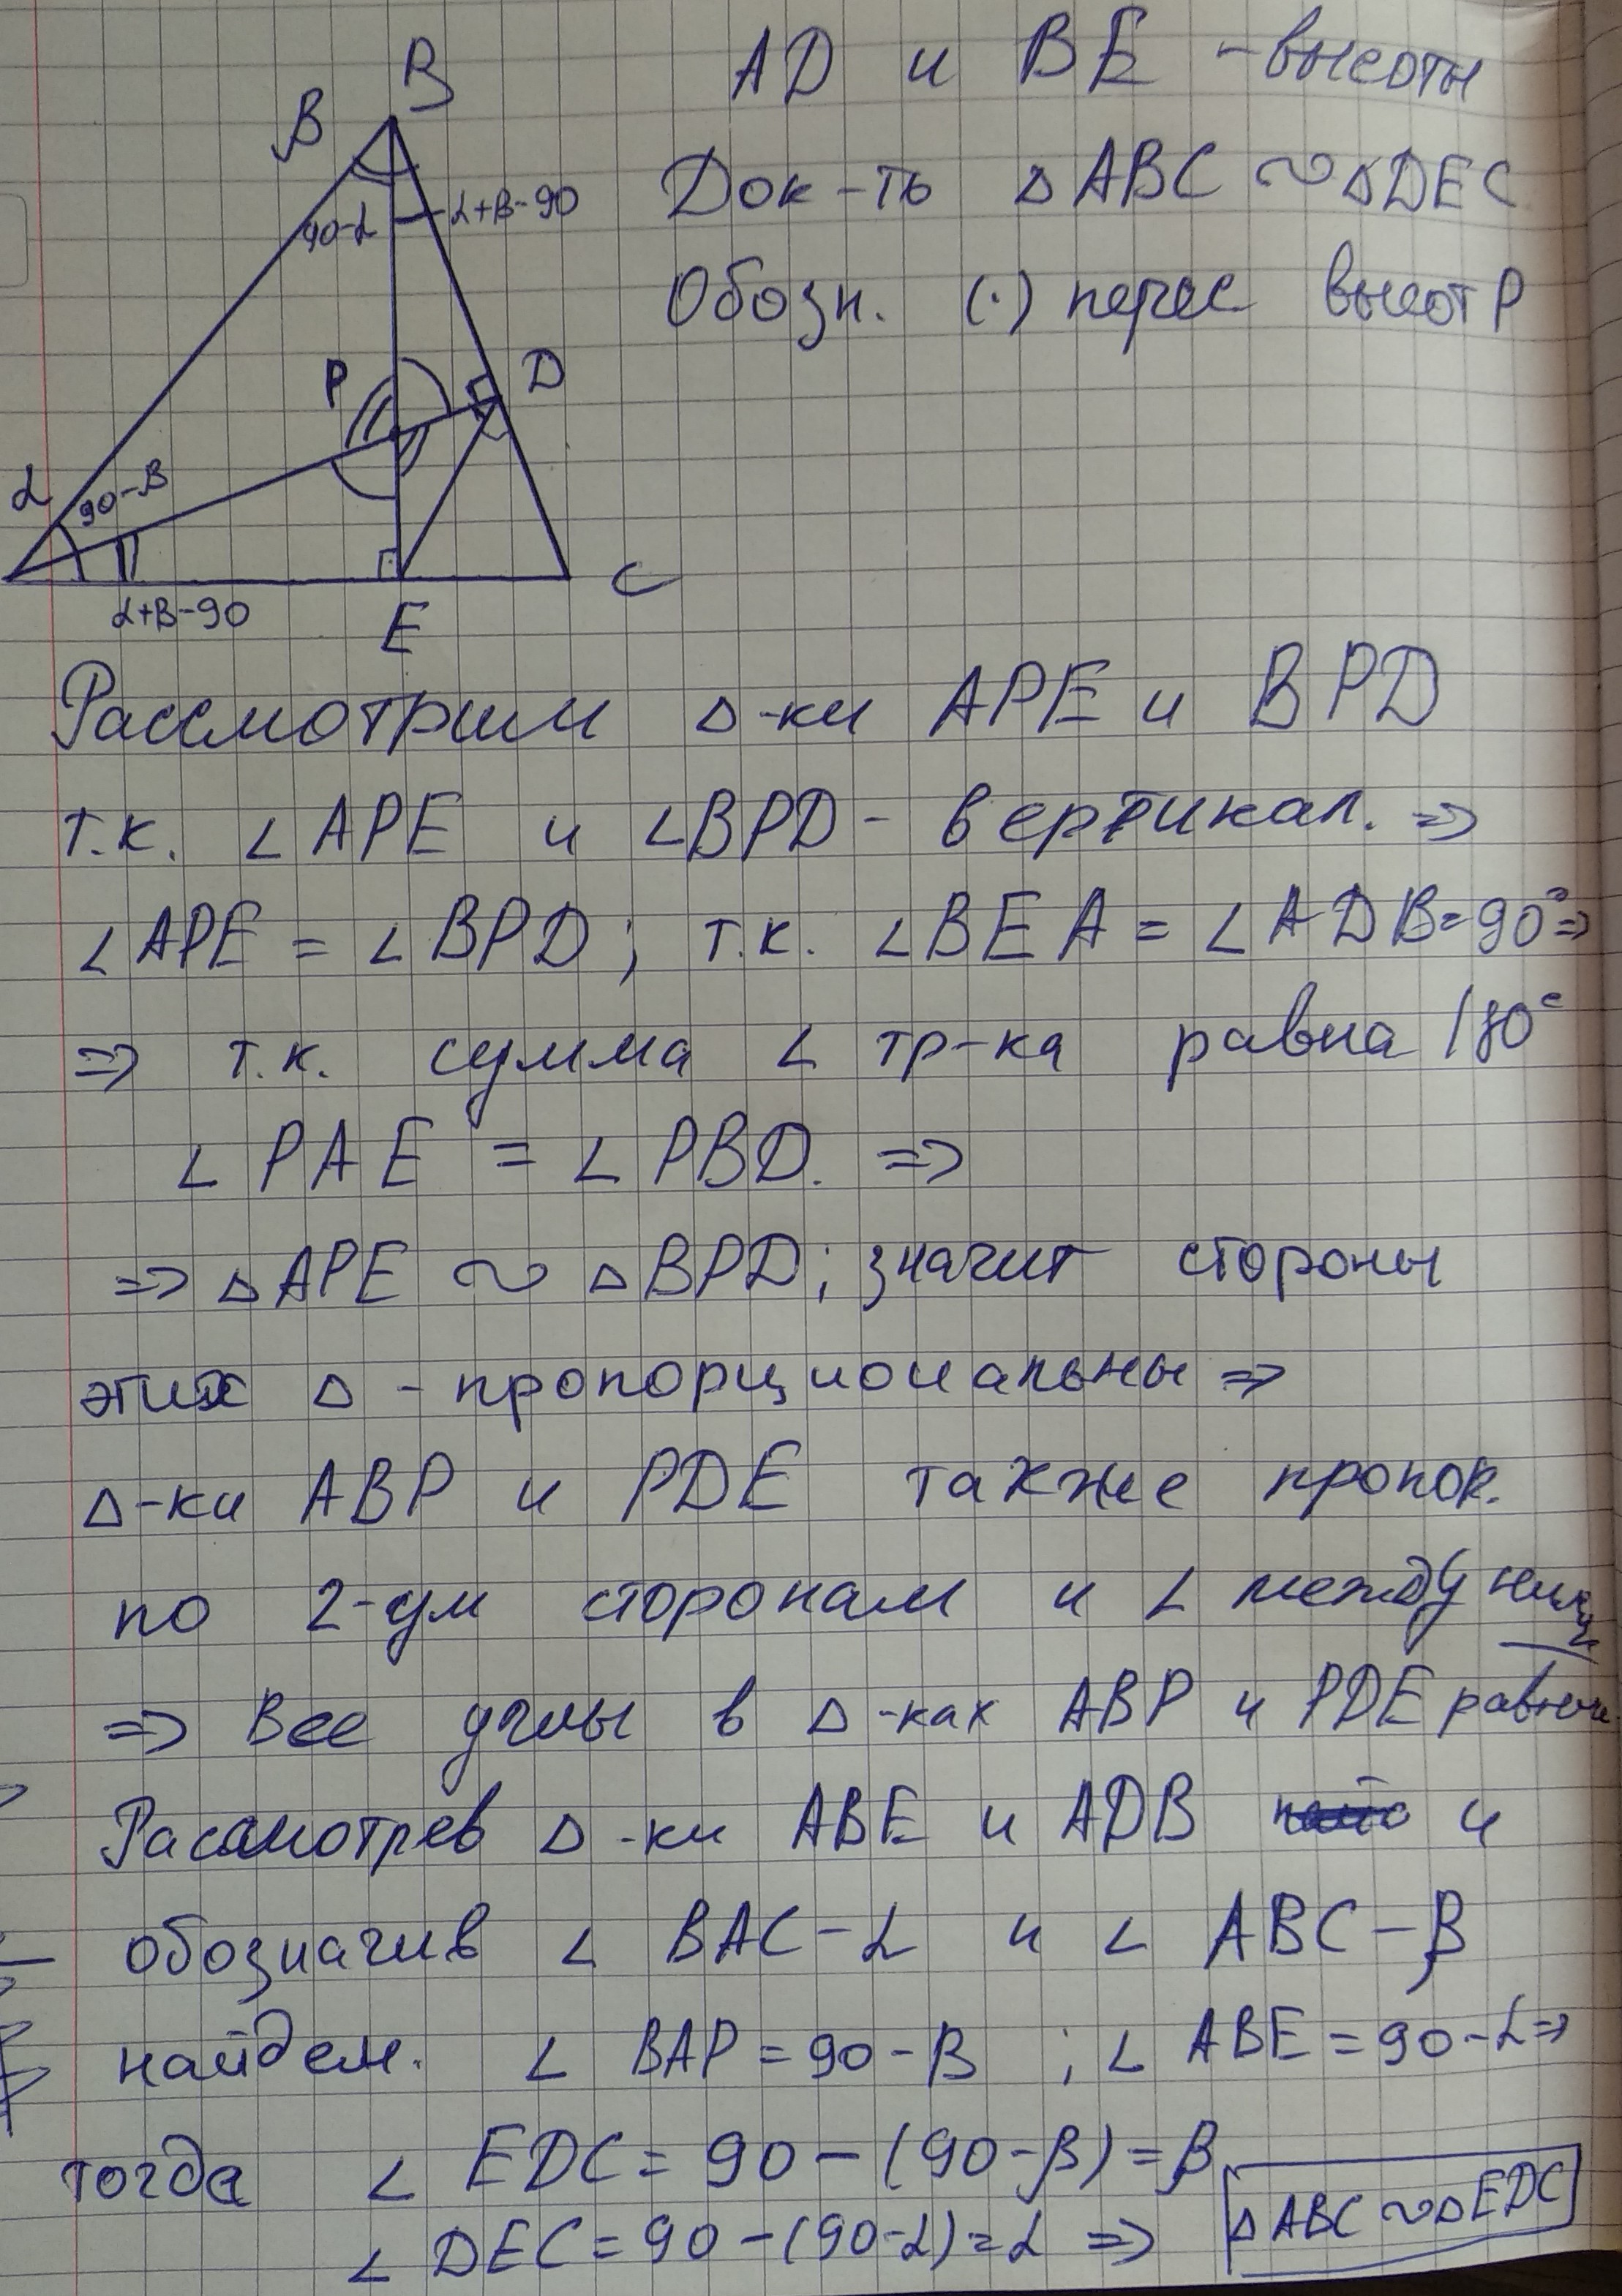 AD и BE - высоты
Док-ть △ ABC ∾ △DEC
Обозн. (·) перес высот P
B
β
90-α
α+β-90
P
D
α
90-β
α+β-90
E
C
Рассмотрим △-ки APE и BPD
т.к. ∠ APE и ∠BPD - вертикал. =>
∠ APE = ∠ BPD; т.к. ∠BEA = ∠ADB=90° =>
=> т.к. сумма ∠ тр-ка равна 180°
∠ PAE = ∠ PBD. =>
=> △ APE ∾ △BPD; значит стороны
этих △ - пропорциональны =>
△-ки ABP и PDE также пропор.
по 2-ум сторонам и ∠ между ними
=> Все углы в △-ках ABP и PDE равны
Рассмотрев △-ки ABE и ADB и
обозначив ∠ BAC-α и ∠ ABC-β
найдем. ∠ BAP = 90-β ; ∠ ABE = 90-α =>
тогда ∠ EDC = 90-(90-β)=β
∠ DEC = 90-(90-α)=α => △ ABC ∾ △ EDC